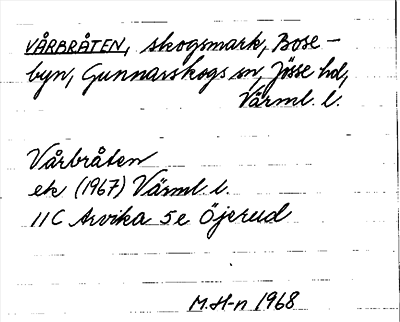 VÅRBRÅTEN, skogsmark, Bose-
byn, Gunnarskogs sn, Jösse hd,
Värml. l.
Vårbråten
ek (1967) Värml. l.
11C Arvika 5e Öjerud
M.H-n 1968